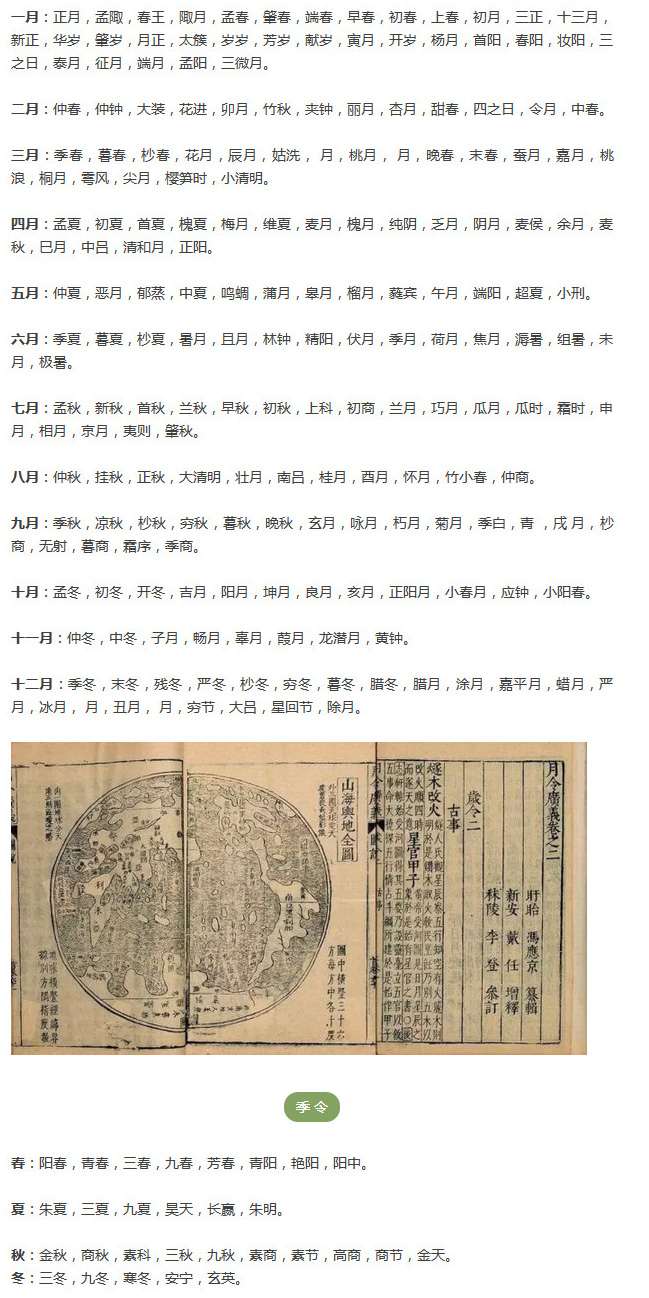 一月：正月，孟陬，春王，陬月，孟春，肇春，端春，早春，初春，上春，初月，三正，十三月，
新正，华岁，肇岁，月正，太簇，岁岁，芳岁，献岁，寅月，开岁，杨月，首阳，春阳，妆阳，三
之日，泰月，征月，端月，孟阳，三微月。
二月：仲春，仲钟，大装，花进，卯月，竹秋，夹钟，丽月，杏月，甜春，四之日，令月，中春。
三月：季春，暮春，杪春，花月，辰月，姑洗， 月，桃月， 月，晚春，末春，蚕月，嘉月，桃
浪，桐月，雩风，尖月，樱笋时，小清明。
四月：孟夏，初夏，首夏，槐夏，梅月，维夏，麦月，槐月，纯阴，乏月，阴月，麦侯，余月，麦
秋，巳月，中吕，清和月，正阳。
五月：仲夏，恶月，郁蒸，中夏，鸣蜩，蒲月，皋月，榴月，蕤宾，午月，端阳，超夏，小刑。
六月：季夏，暮夏，杪夏，暑月，且月，林钟，精阳，伏月，季月，荷月，焦月，溽暑，组暑，未
月，极暑。
七月：孟秋，新秋，首秋，兰秋，早秋，初秋，上科，初商，兰月，巧月，瓜月，瓜时，霜时，申
月，相月，京月，夷则，肇秋。
八月：仲秋，挂秋，正秋，大清明，壮月，南吕，桂月，酉月，怀月，竹小春，仲商。
九月：季秋，凉秋，杪秋，穷秋，暮秋，晚秋，玄月，咏月，朽月，菊月，季白，青 ，戌 月，杪
商，无射，暮商，霜序，季商。
十月：孟冬，初冬，开冬，吉月，阳月，坤月，良月，亥月，正阳月，小春月，应钟，小阳春。
十一月：仲冬，中冬，子月，畅月，辜月，葭月，龙潜月，黄钟。
十二月：季冬，末冬，残冬，严冬，杪冬，穷冬，暮冬，腊冬，腊月，涂月，嘉平月，蜡月，严
月，冰月， 月，丑月， 月，穷节，大吕，星回节，除月。
月令廣義卷之二
盱眙 馮應京 纂輯
新安 戴任 增釋
秣陵 李登 參訂
歲令二
古事
燧木改火
星官甲子
山海輿地全圖
圖中橫豎三十六
方每方中各十度
季令
春：阳春，青春，三春，九春，芳春，青阳，艳阳，阳中。
夏：朱夏，三夏，九夏，昊天，长嬴，朱明。
秋：金秋，商秋，素科，三秋，九秋，素商，素节，高商，商节，金天。
冬：三冬，九冬，寒冬，安宁，玄英。